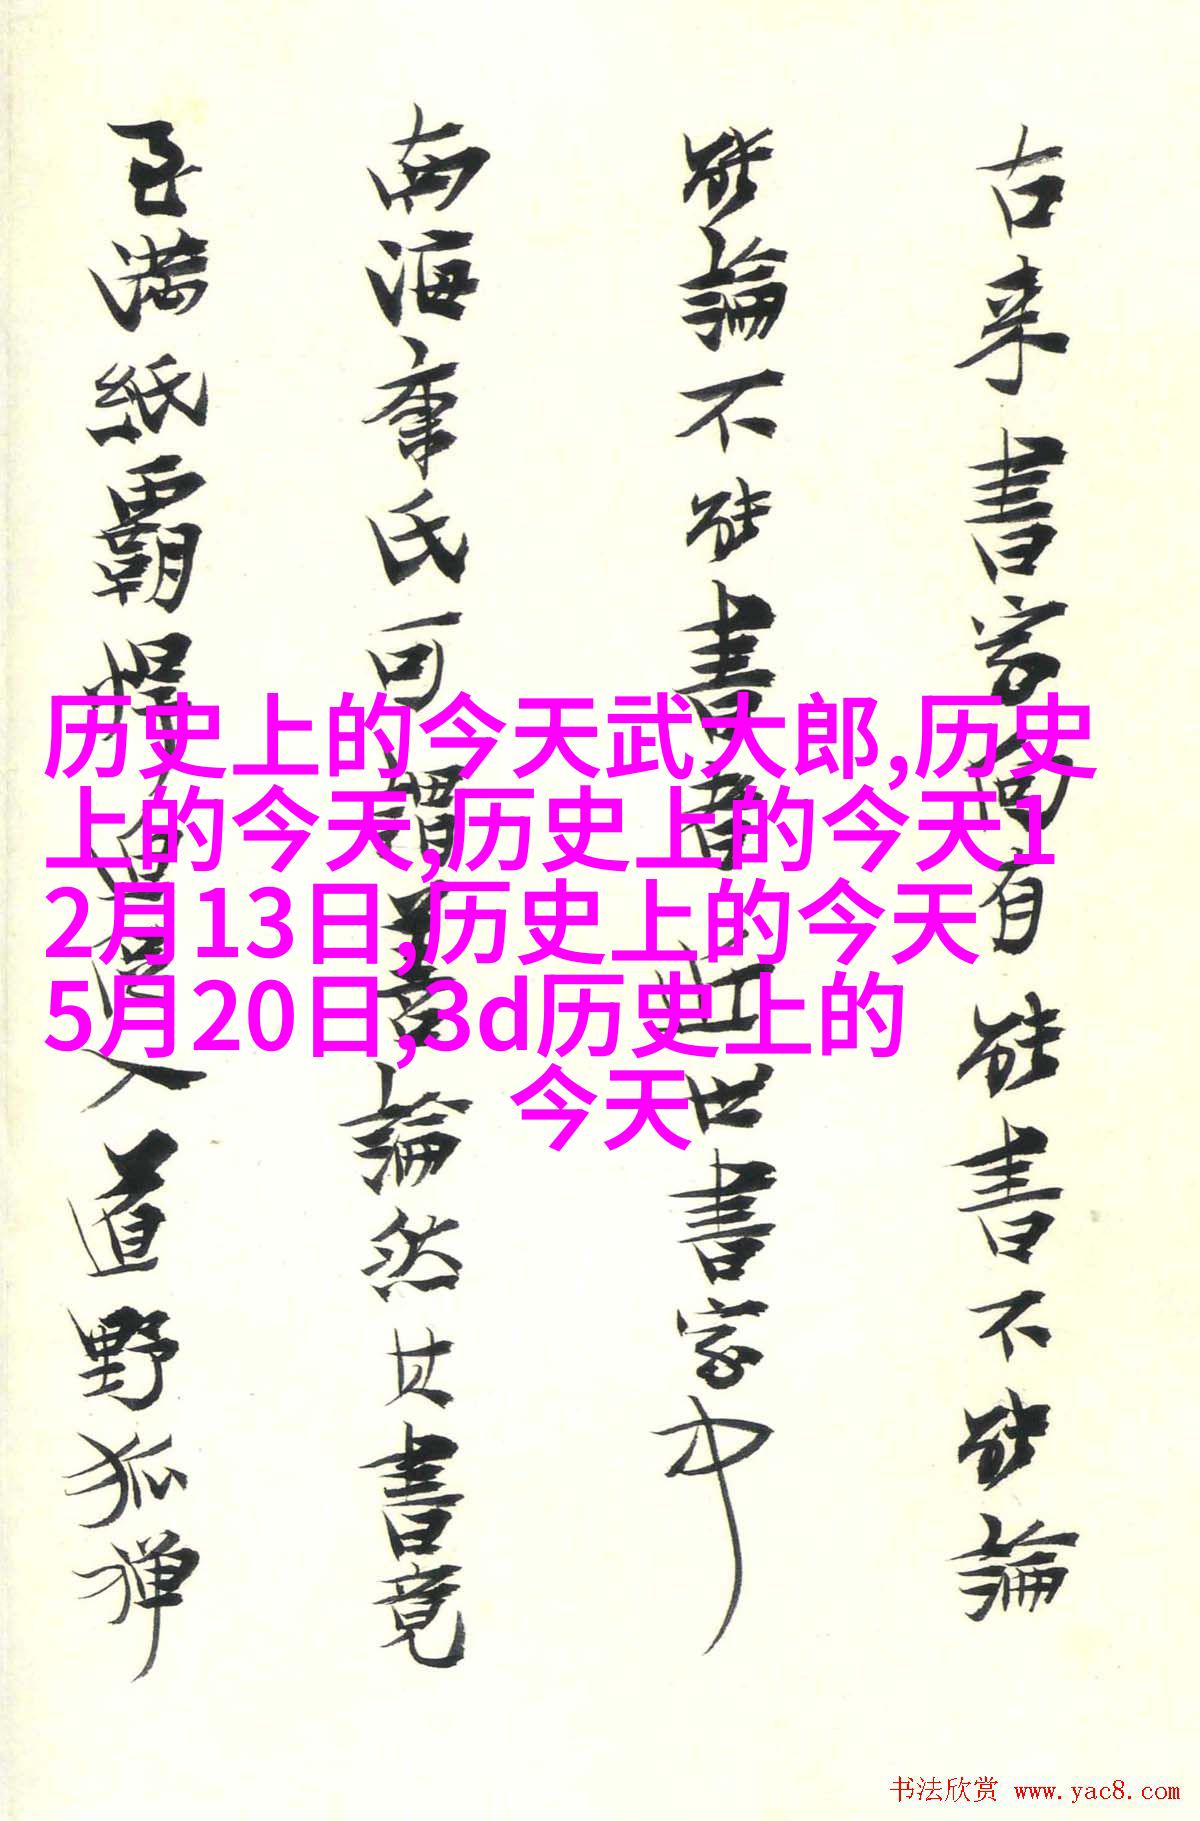 古来書家向有能書不能論
能論不能書者近世書家中
南海康氏可謂善論然其書竟
至满紙霸悍入道野狐禅
历史上的今天武大郎,历史
上的今天,历史上的今天1
2月13日,历史上的今天
5月20日,3d历史上的
今天
书法欣赏 www.yac8.com